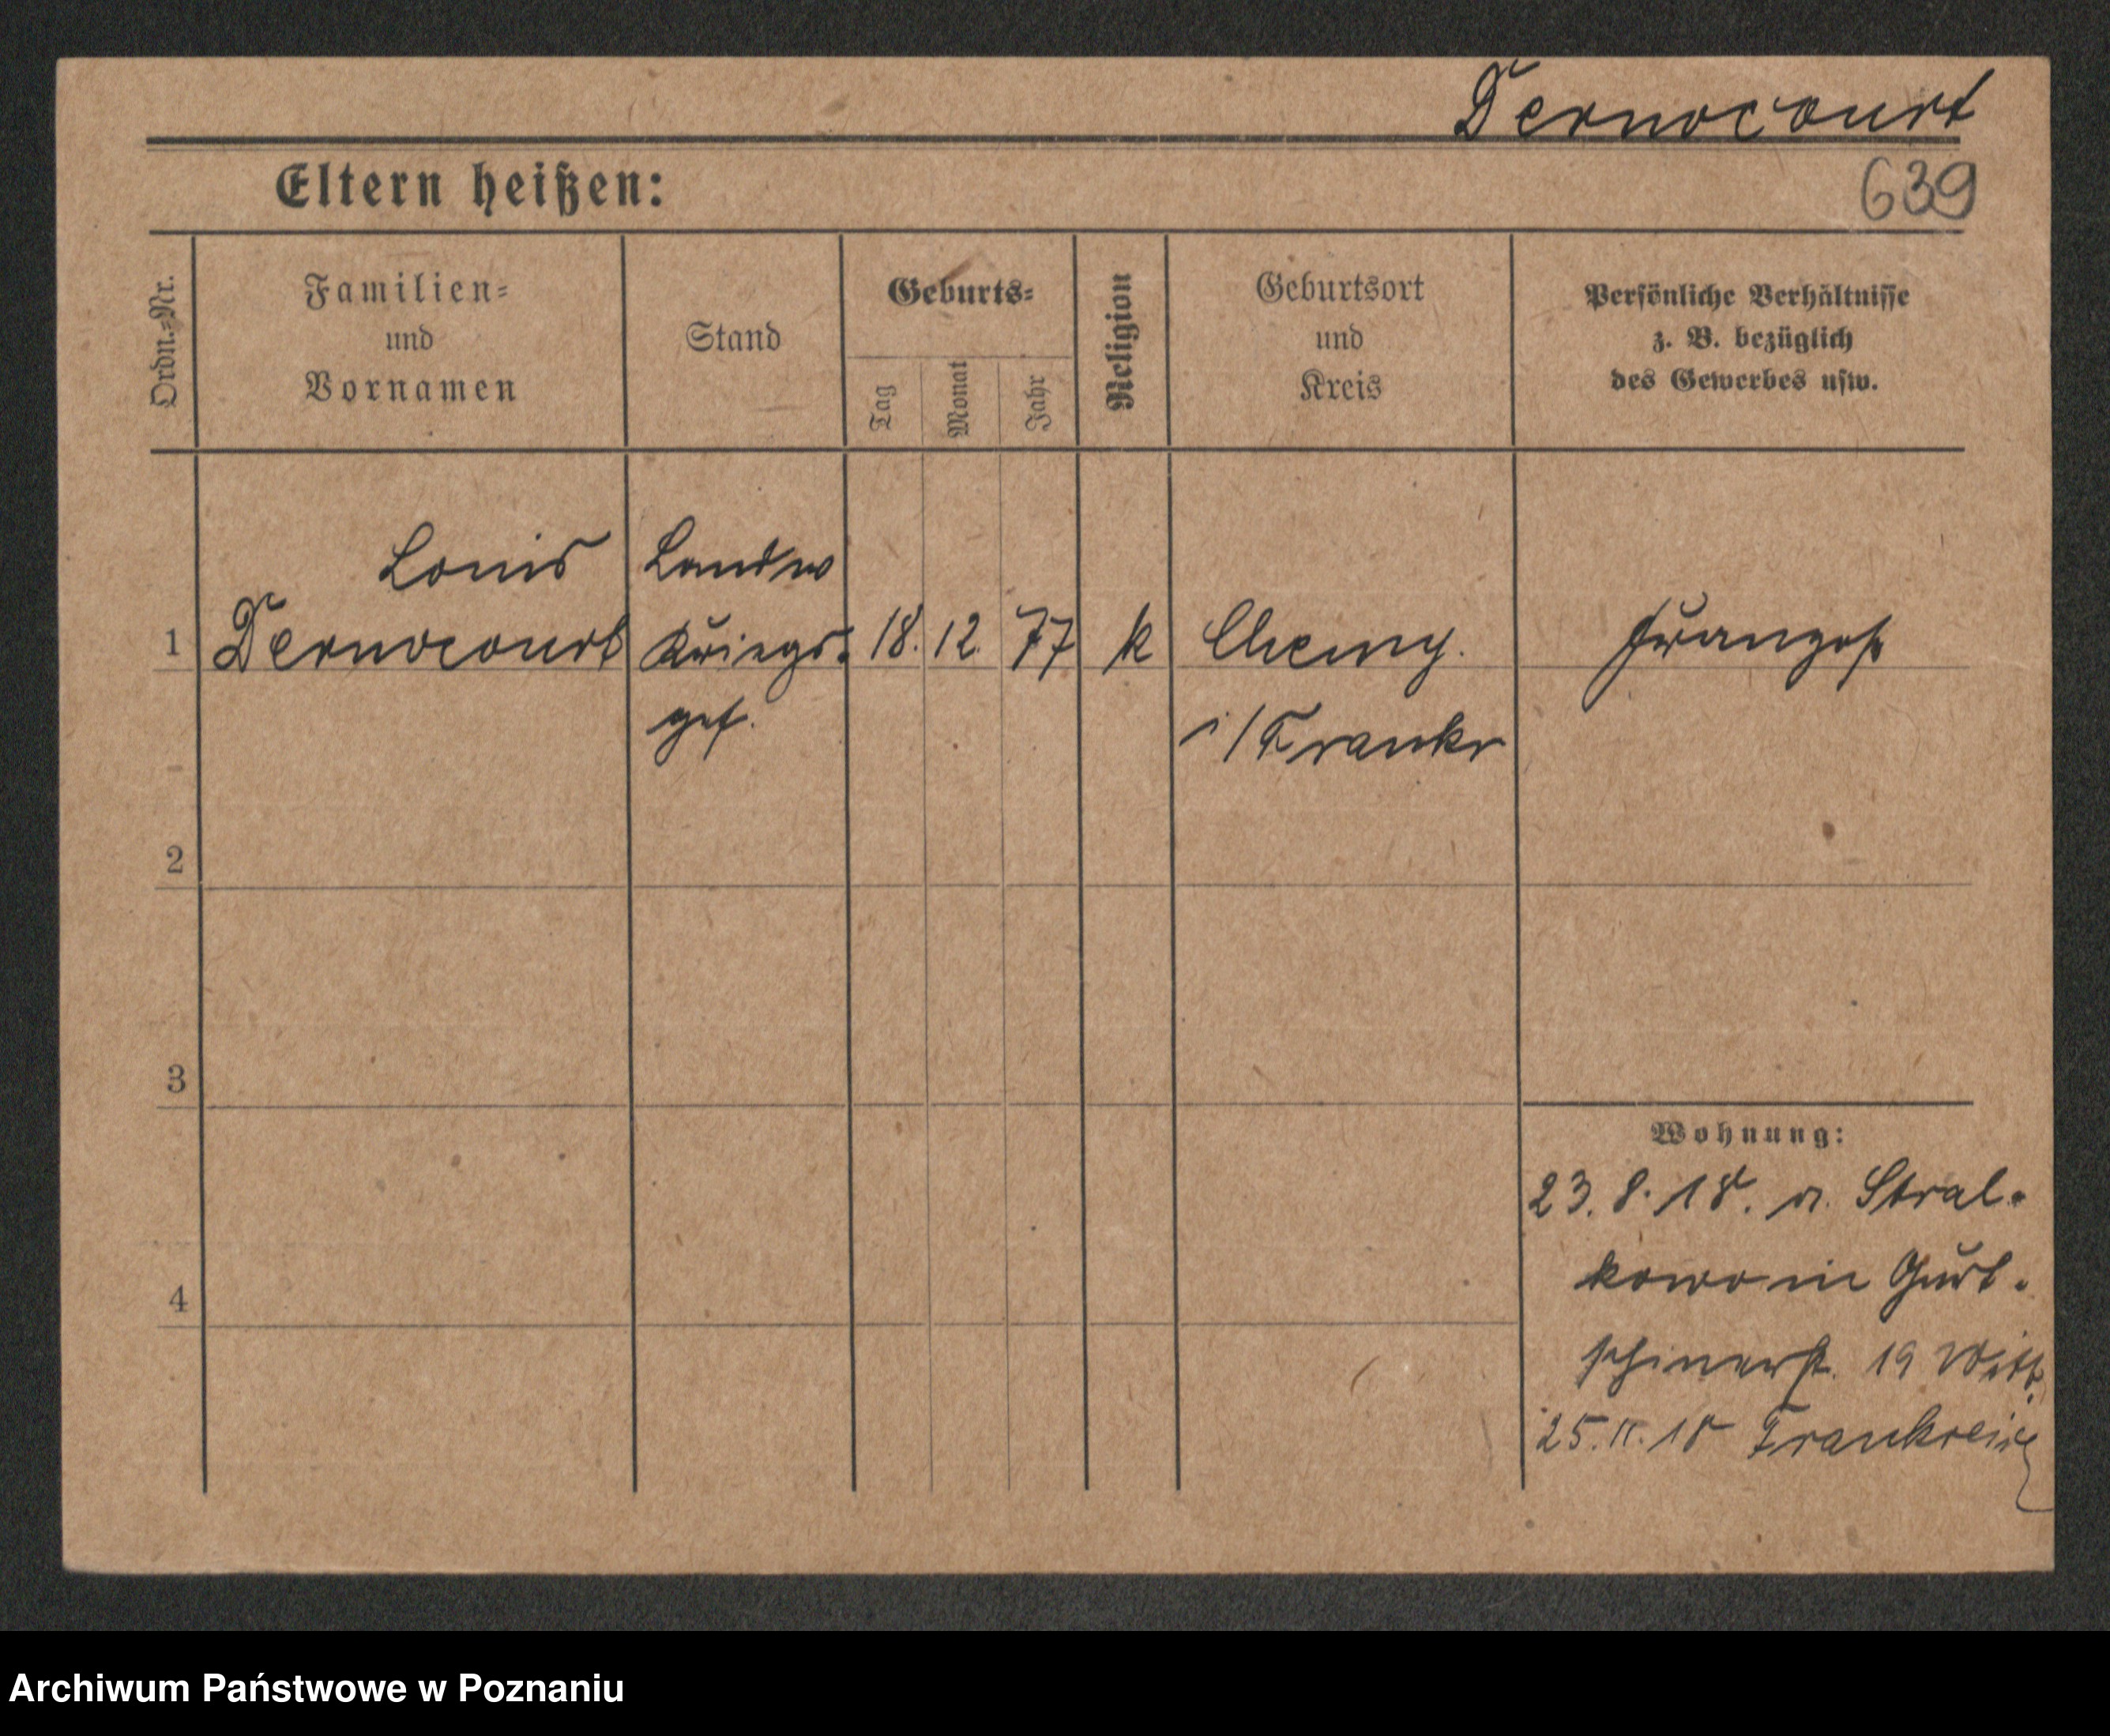 Dernocourt
Eltern heißen:
639
Ordn.-Nr.
Familien-
und
Vornamen
Stand
Geburts-
Tag
Monat
Jahr
Religion
Geburtsort
und
Kreis
Persönliche Verhältnisse
z. B. bezüglich
des Gewerbes usw.
Louis
Landw
1 Dernocourt Kriegs- 18. 12. 77 k Franzose
gef. i/Frankr
2
3
4
Wohnung:
23. 8. 18. a. Stral-
kowo in Gurt-
schinerst. 19 Witt
25. 11. 18 Frankreich
Archiwum Państwowe w Poznaniu